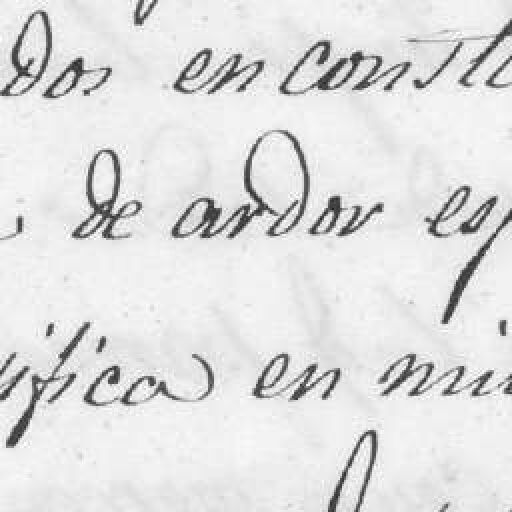 dos en const
de ardor esp
ifica en mi